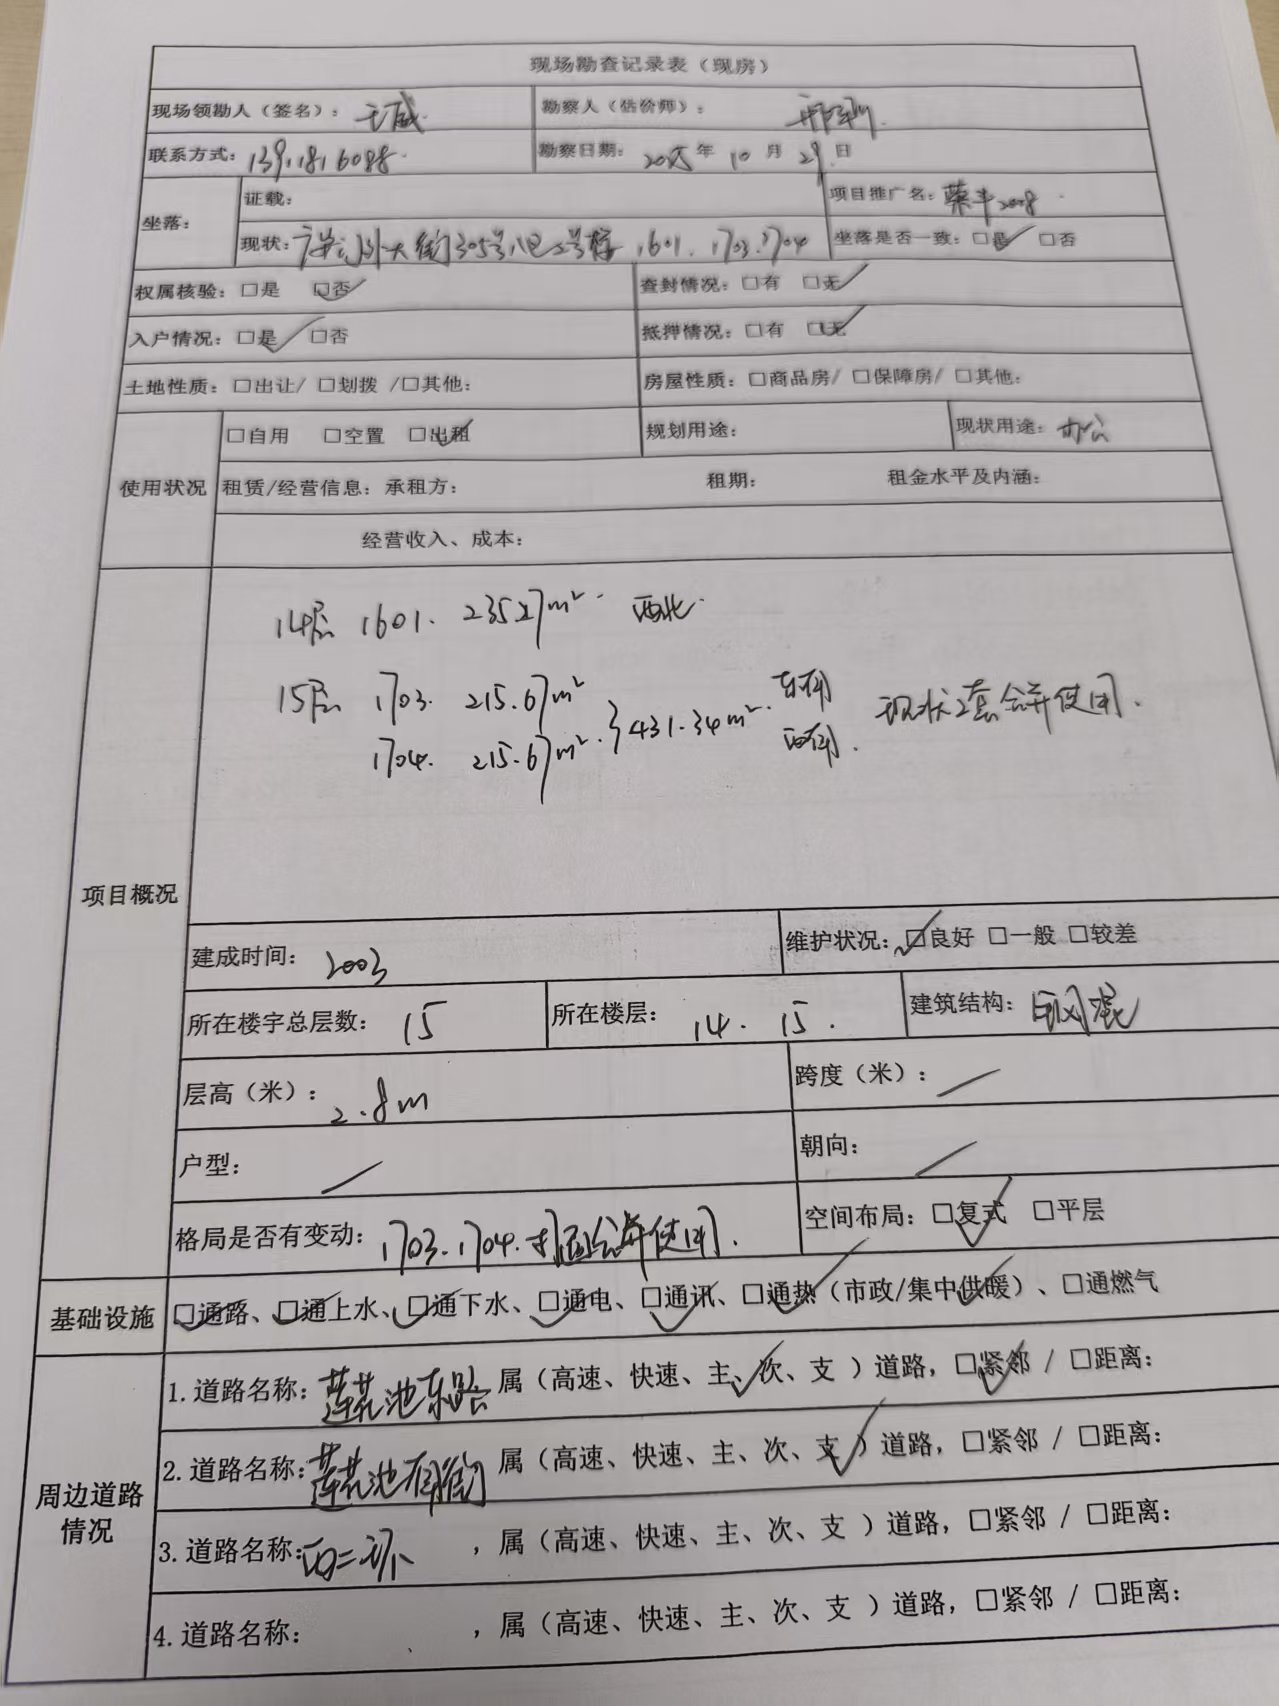 现场勘查记录表（现房）
现场领勘人（签名）：王威 勘察人（估价师）：
联系方式：13911816088 勘察日期：2025年10月29日
坐落： 证载： 项目推广名：荣丰2008
现状：广安门外大街305号八区2号楼 1601. 1703. 1704 坐落是否一致：☑是 □否
权属核验：□是 ☑否 查封情况：□有 ☑无
入户情况：☑是 □否 抵押情况：□有 ☑无
土地性质：□出让/ □划拨 /□其他： 房屋性质：□商品房/ □保障房/ □其他：
使用状况 □自用 □空置 ☑出租 规划用途： 现状用途：办公
租赁/经营信息：承租方： 租期： 租金水平及内涵：
经营收入、成本：
项目概况
14层 1601. 235.27m². 西北.
15层 1703. 215.67m² 东南
1704. 215.67m². }431.34m². 西南. 现状2套合并使用.
建成时间：2003 维护状况：☑良好 □一般 □较差
所在楼宇总层数：15 所在楼层：14. 15. 建筑结构：钢混
层高（米）：2.8m 跨度（米）：/
户型：/ 朝向：/
格局是否有变动：1703. 1704. 打通合并使用. 空间布局：☑复式 □平层
基础设施 ☑通路、☑通上水、☑通下水、☑通电、☑通讯、☑通热（市政/集中供暖）、□通燃气
周边道路情况
1.道路名称：莲花池东路 属（高速、快速、主、次、支 ）道路，☑紧邻 / □距离：
2.道路名称：莲花池南街 属（高速、快速、主、次、支 ）道路，□紧邻 / □距离：
3.道路名称：西二环 ，属（高速、快速、主、次、支 ）道路，□紧邻 / □距离：
4.道路名称： ，属（高速、快速、主、次、支 ）道路，□紧邻 / □距离：